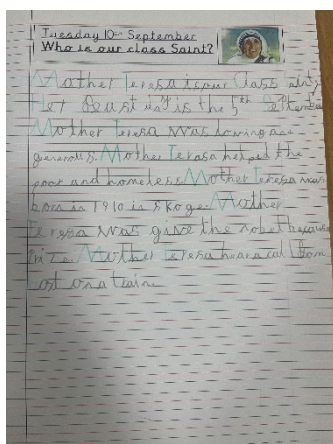 Tuesday 10th September
Who is our class Saint?
Mother Teresa is our Class
Her feast day is the 5th
Mother Teresa was loving and
generous. Mother Teresa helped the
poor and homeless Mother Teresa was
born in 1910 in Skoge. Mother
Teresa was give the nobel because
Mother Teresa hear a call from
on a train